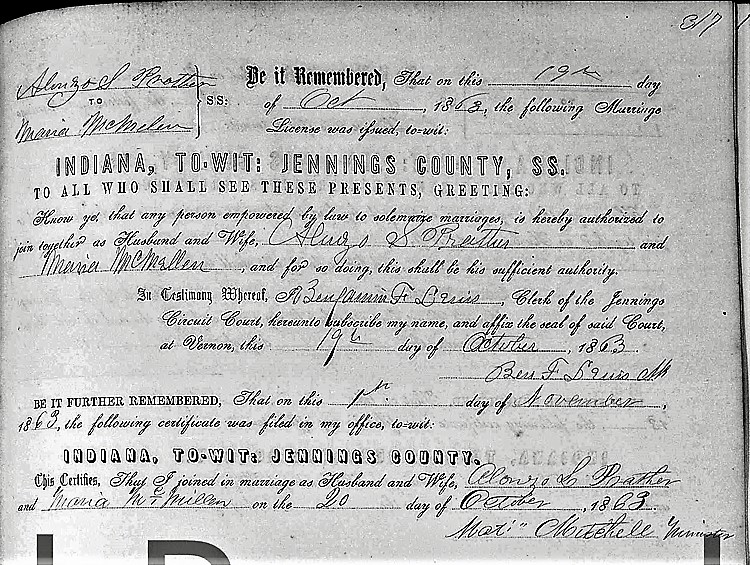 317
Alonzo S Prather
TO
Maria McMelen
SS:
Be it Remembered, That on this 19th day
of Oct, 1863, the following Marriage
License was issued, to-wit:
INDIANA, TO-WIT: JENNINGS COUNTY, SS.
TO ALL WHO SHALL SEE THESE PRESENTS, GREETING:
Know ye, that any person empowered by law to solemnize marriages, is hereby authorized to
join together as Husband and Wife, Alonzo S Prather and
Maria McMillen, and for so doing, this shall be his sufficient authority.
In Testimony Whereof, I Benjamin F Lewis, Clerk of the Jennings
Circuit Court, hereunto subscribe my name, and affix the seal of said Court,
at Vernon, this 19th day of October, 1863.
Ben F Lewis Clk
BE IT FURTHER REMEMBERED, That on this 1st day of November,
1863, the following certificate was filed in my office, to-wit:
INDIANA, TO-WIT: JENNINGS COUNTY.
This Certifies, That I joined in marriage as Husband and Wife, Alonzo S Prather
and Maria McMillen on the 20 day of October, 1863.
Mitchell Minister